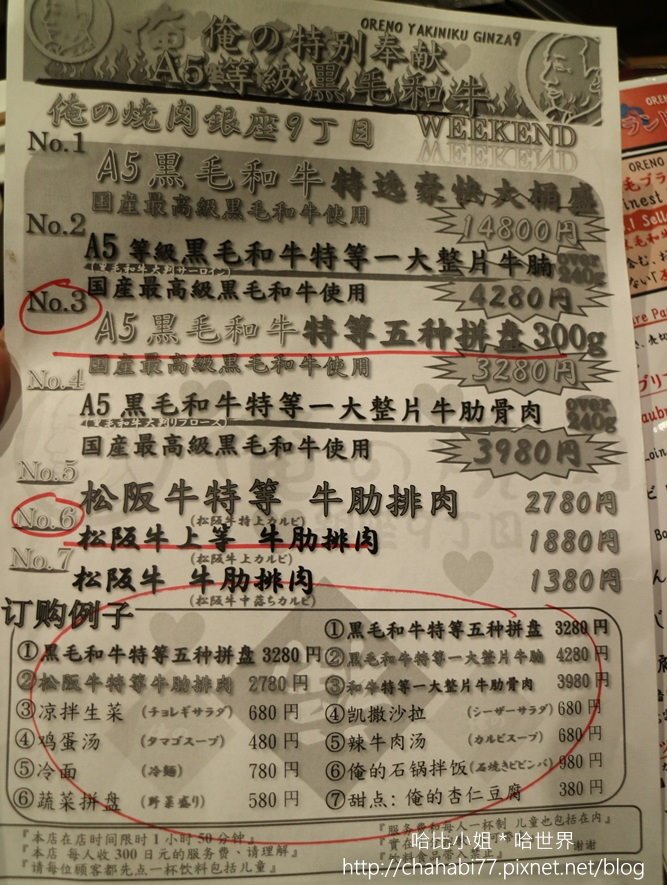 ORENO YAKINIKU GINZA9
俺の特別奉献
A5等級黒毛和牛
俺の焼肉銀座9丁目 WEEKEND
No.1
A5黒毛和牛特选豪快大桶盛
国産最高級黒毛和牛使用 14800円
No.2
A5等級黒毛和牛特等一大整片牛腩 over 240g
(黒毛和牛大判サーロイン)
国産最高級黒毛和牛使用 4280円
No.3
A5黒毛和牛特等五种拼盘300g
国産最高級黒毛和牛使用 3280円
No.4
A5黒毛和牛特等一大整片牛肋骨肉 over 240g
(黒毛和牛大判リブロース)
国産最高級黒毛和牛使用 3980円
No.5
松阪牛特等 牛肋排肉 2780円
(松阪牛特上カルビ)
No.6
松阪牛上等 牛肋排肉 1880円
(松阪牛上カルビ)
No.7
松阪牛 牛肋排肉 1380円
(松阪牛中落ちカルビ)
订购例子
①黑毛和牛特等五种拼盘 3280円
②松阪牛特等牛肋排肉 2780円
③凉拌生菜 (チョレギサラダ) 680円
④鸡蛋汤 (タマゴスープ) 480円
⑤冷面 (冷麺) 780円
⑥蔬菜拼盘 (野菜盛り) 580円
①黑毛和牛特等五种拼盘 3280円
②黑毛和牛特等一大整片牛腩 4280円
③和牛特等一大整片牛肋骨肉 3980円
④凯撒沙拉 (シーザーサラダ) 680円
⑤辣牛肉汤 (カルビスープ) 680円
⑥俺的石锅拌饭 (石焼きビビンバ) 980円
⑦甜点:俺的杏仁豆腐 380円
『本店在店时间限时1小时50分钟』
『本店 每人收300日元的服务费、请理解』
『请每位顾客都先点一杯饮料包括儿童』
『服务费和每人一杯制 儿童也包括在内』
谢谢
哈比小姐*哈世界
http://chahabi77.pixnet.net/blog